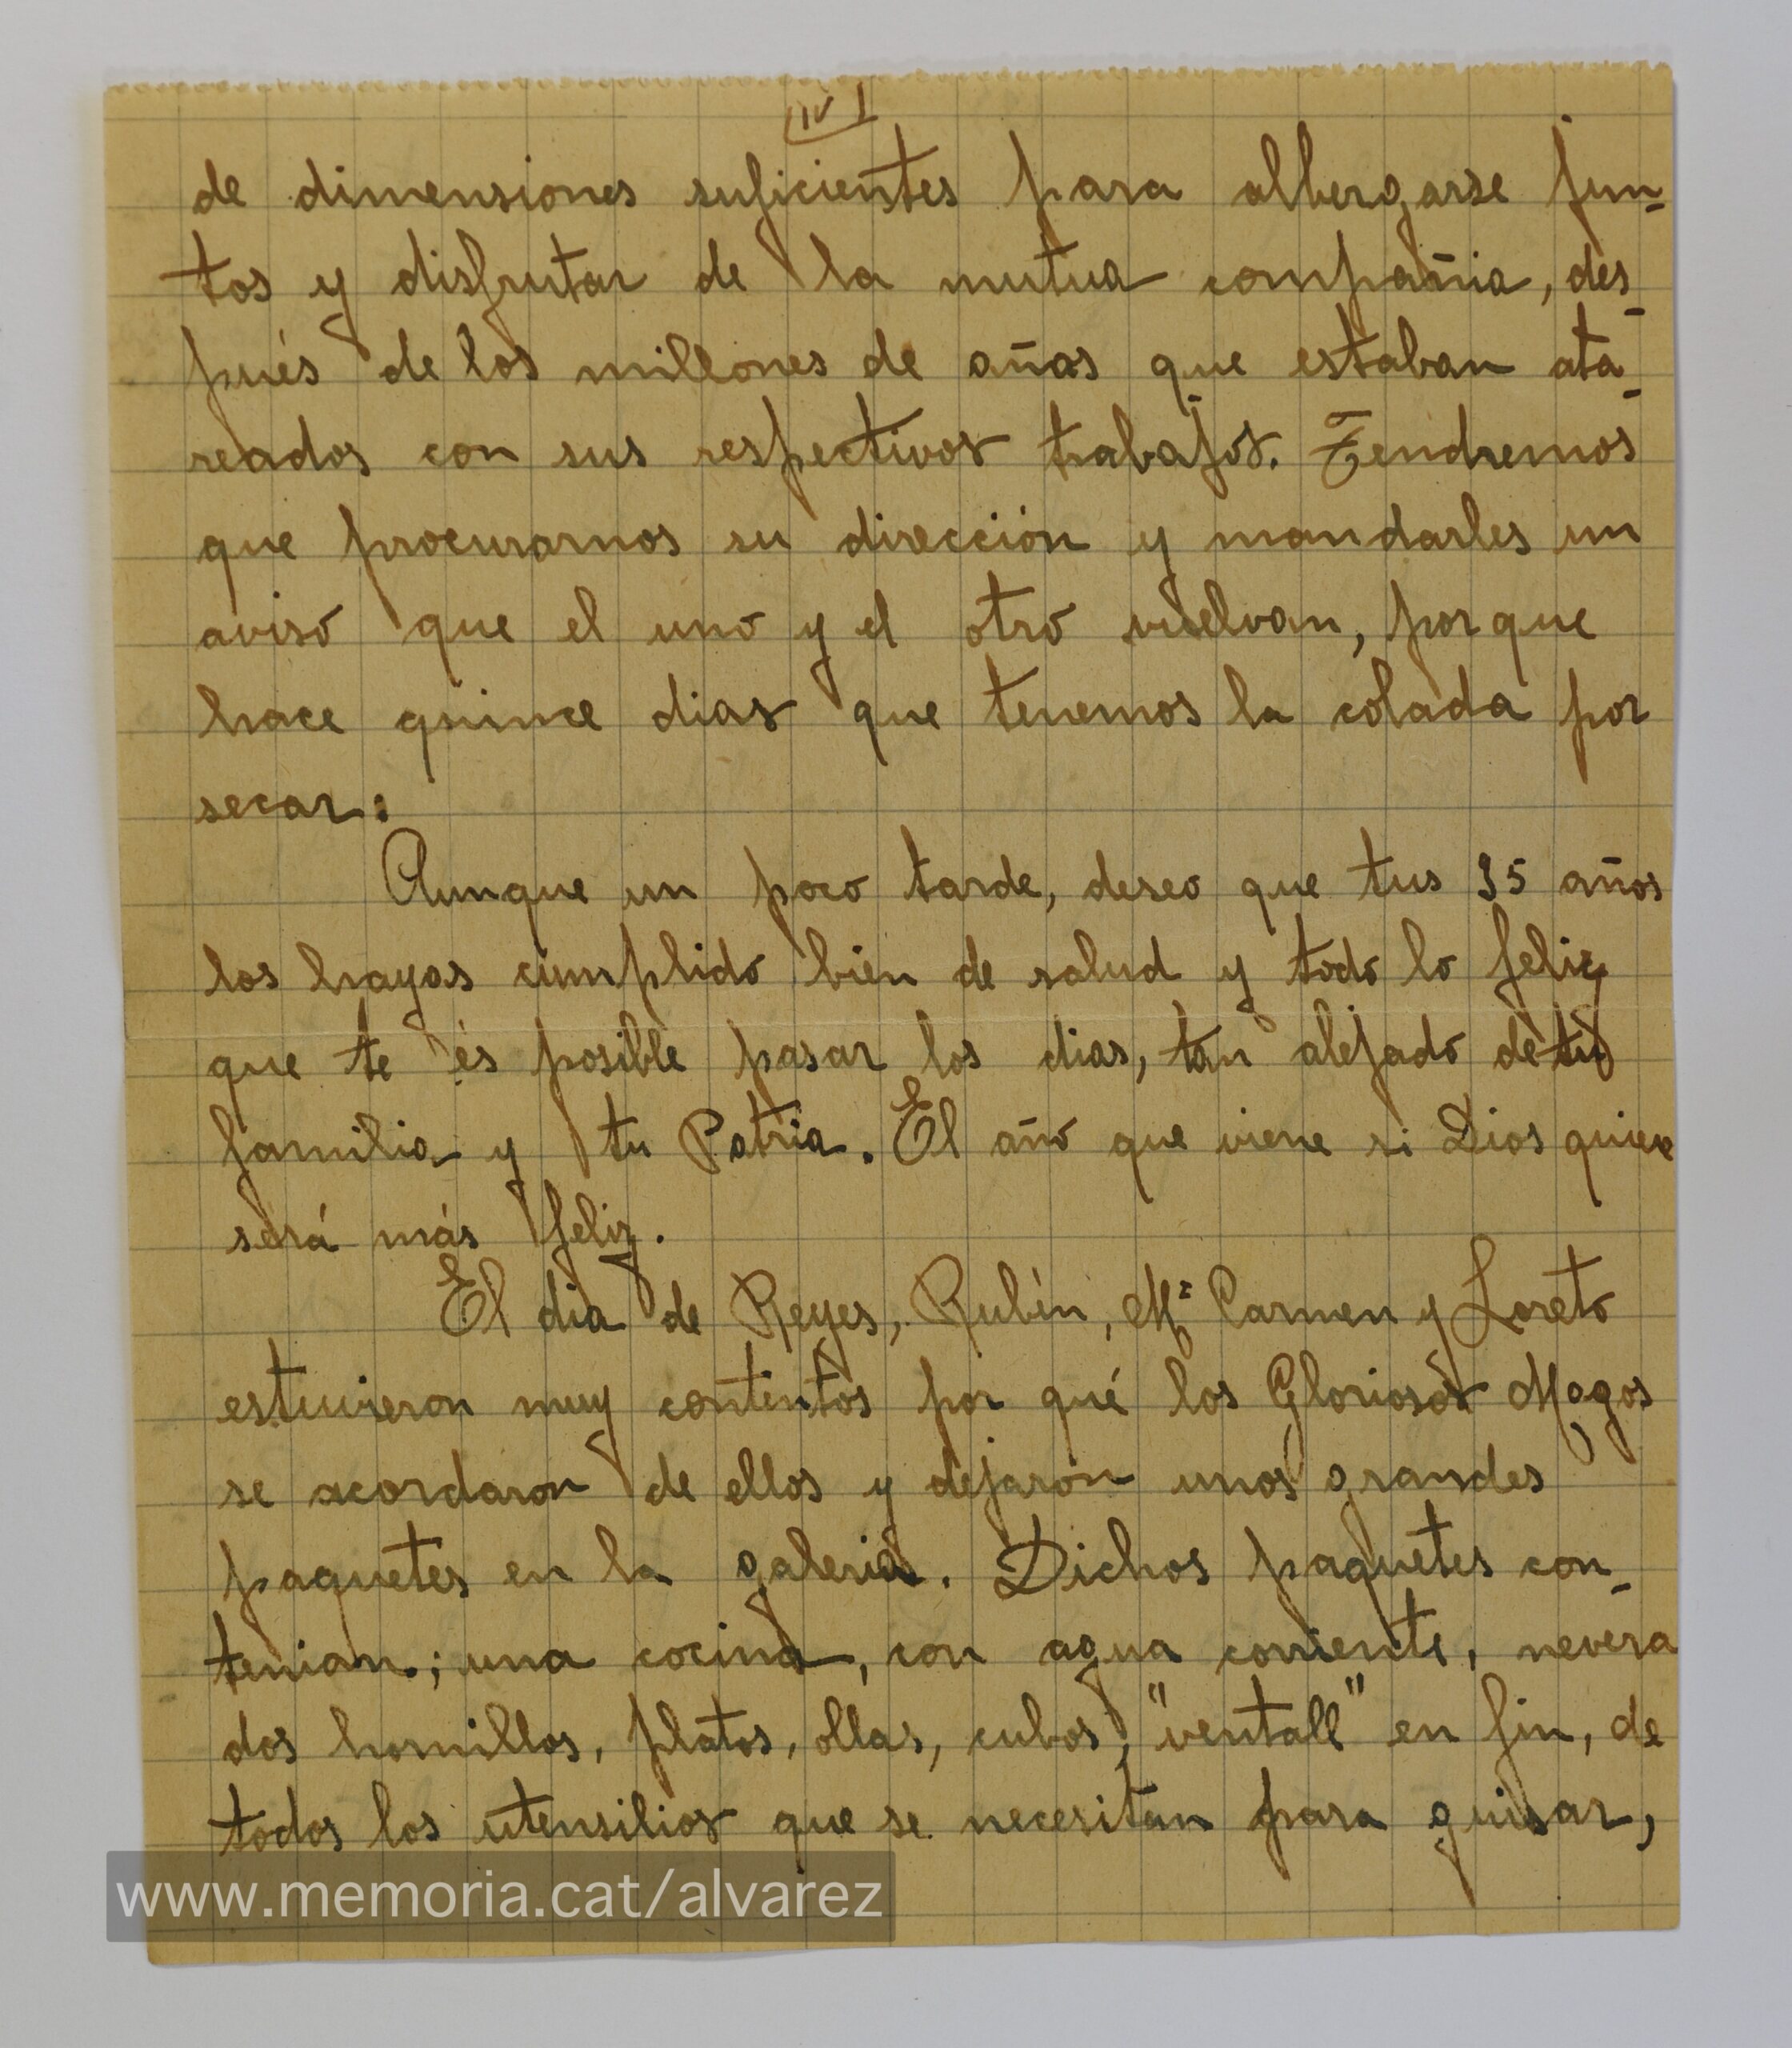 IV
de dimensiones suficientes para albergarse jun-
tos y disfrutar de la mutua compañia, des-
pués de los millones de años que estaban ata-
reados con sus respectivos trabajos. Tendremos
que procurarnos su dirección y mandarles un
aviso que el uno y el otro vuelvan, porque
hace quince dias que tenemos la colada por
secar:
Aunque un poco tarde, deseo que tus 35 años
los hayas cumplido bien de salud y todo lo feliz
que te és posible pasar los dias, tan alejado de tu
familia y tu Patria. El año que viene si Dios quiere
será más feliz.
El dia de Reyes, Rubín, Mª Carmen y Loreto
estuvieron muy contentos por qué los Gloriosos Magos
se acordaron de ellos y dejaron unos grandes
paquetes en la galeria. Dichos paquetes con-
tenian; una cocina, con agua corriente, nevera
dos hornillos, platos, ollas, cubos, "ventall" en fin, de
todos los utensilios que se necesitan para guisar,
www.memoria.cat/alvarez